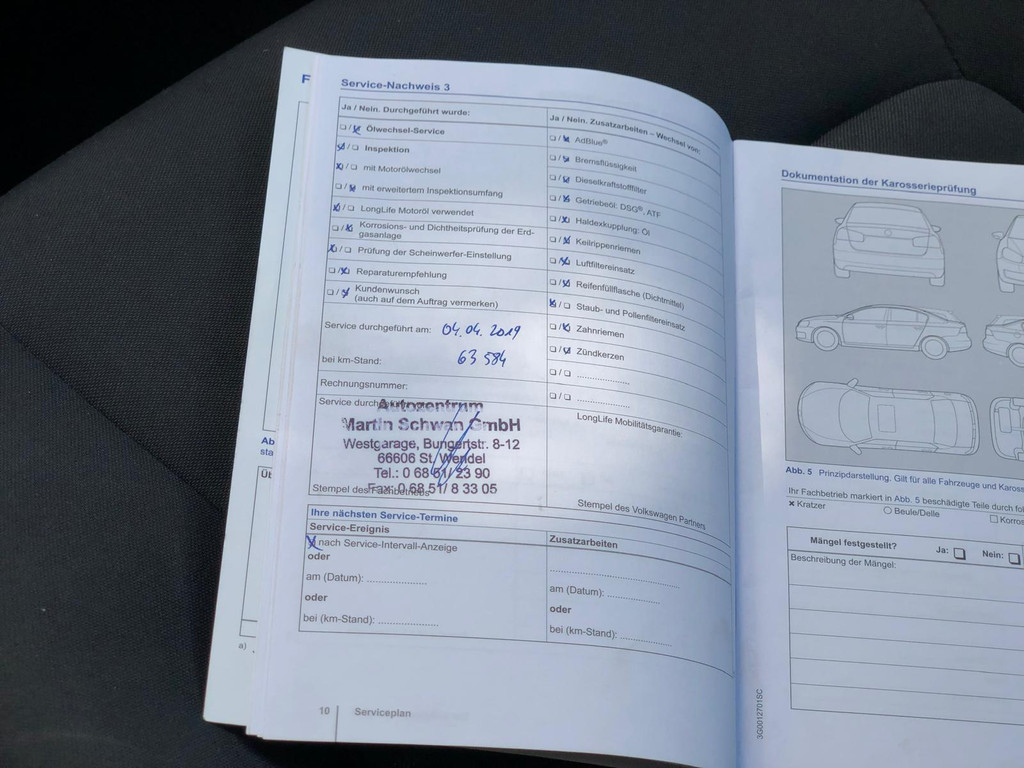 F
Service-Nachweis 3
Ja / Nein. Durchgeführt wurde:
Ölwechsel-Service
Inspektion
mit Motorölwechsel
mit erweitertem Inspektionsumfang
LongLife Motoröl verwendet
Korrosions- und Dichtheitsprüfung der Erd-
gasanlage
Prüfung der Scheinwerfer-Einstellung
Reparaturempfehlung
Kundenwunsch
(auch auf dem Auftrag vermerken)
Service durchgeführt am: 04.04.2019
bei km-Stand: 63 584
Rechnungsnummer:
Autozentrum
Martin Schwan GmbH
Westgarage, Bungertstr. 8-12
66606 St. Wendel
Tel.: 0 68 51/ 23 90
Fax: 0 68 51/ 8 33 05
Stempel des Fachbetriebs
Ja / Nein. Zusatzarbeiten – Wechsel von:
AdBlue®
Bremsflüssigkeit
Dieselkraftstofffilter
Getriebeöl: DSG®, ATF
Haldexkupplung: Öl
Keilrippenriemen
Luftfiltereinsatz
Reifenfüllflasche (Dichtmittel)
Staub- und Pollenfiltereinsatz
Zahnriemen
Zündkerzen
LongLife Mobilitätsgarantie:
Stempel des Volkswagen Partners
Ihre nächsten Service-Termine
Service-Ereignis
nach Service-Intervall-Anzeige
oder
am (Datum): ..................
oder
bei (km-Stand): ..................
Zusatzarbeiten
am (Datum): ................
oder
bei (km-Stand): ................
10 Serviceplan
Ab
sta
Üt
a)
Dokumentation der Karosserieprüfung
Abb. 5 Prinzipdarstellung. Gilt für alle Fahrzeuge und Kaross
Ihr Fachbetrieb markiert in Abb. 5 beschädigte Teile durch fol
× Kratzer
Beule/Delle
Korros
Mängel festgestellt? Ja: Nein:
Beschreibung der Mängel:
3G0012701SC